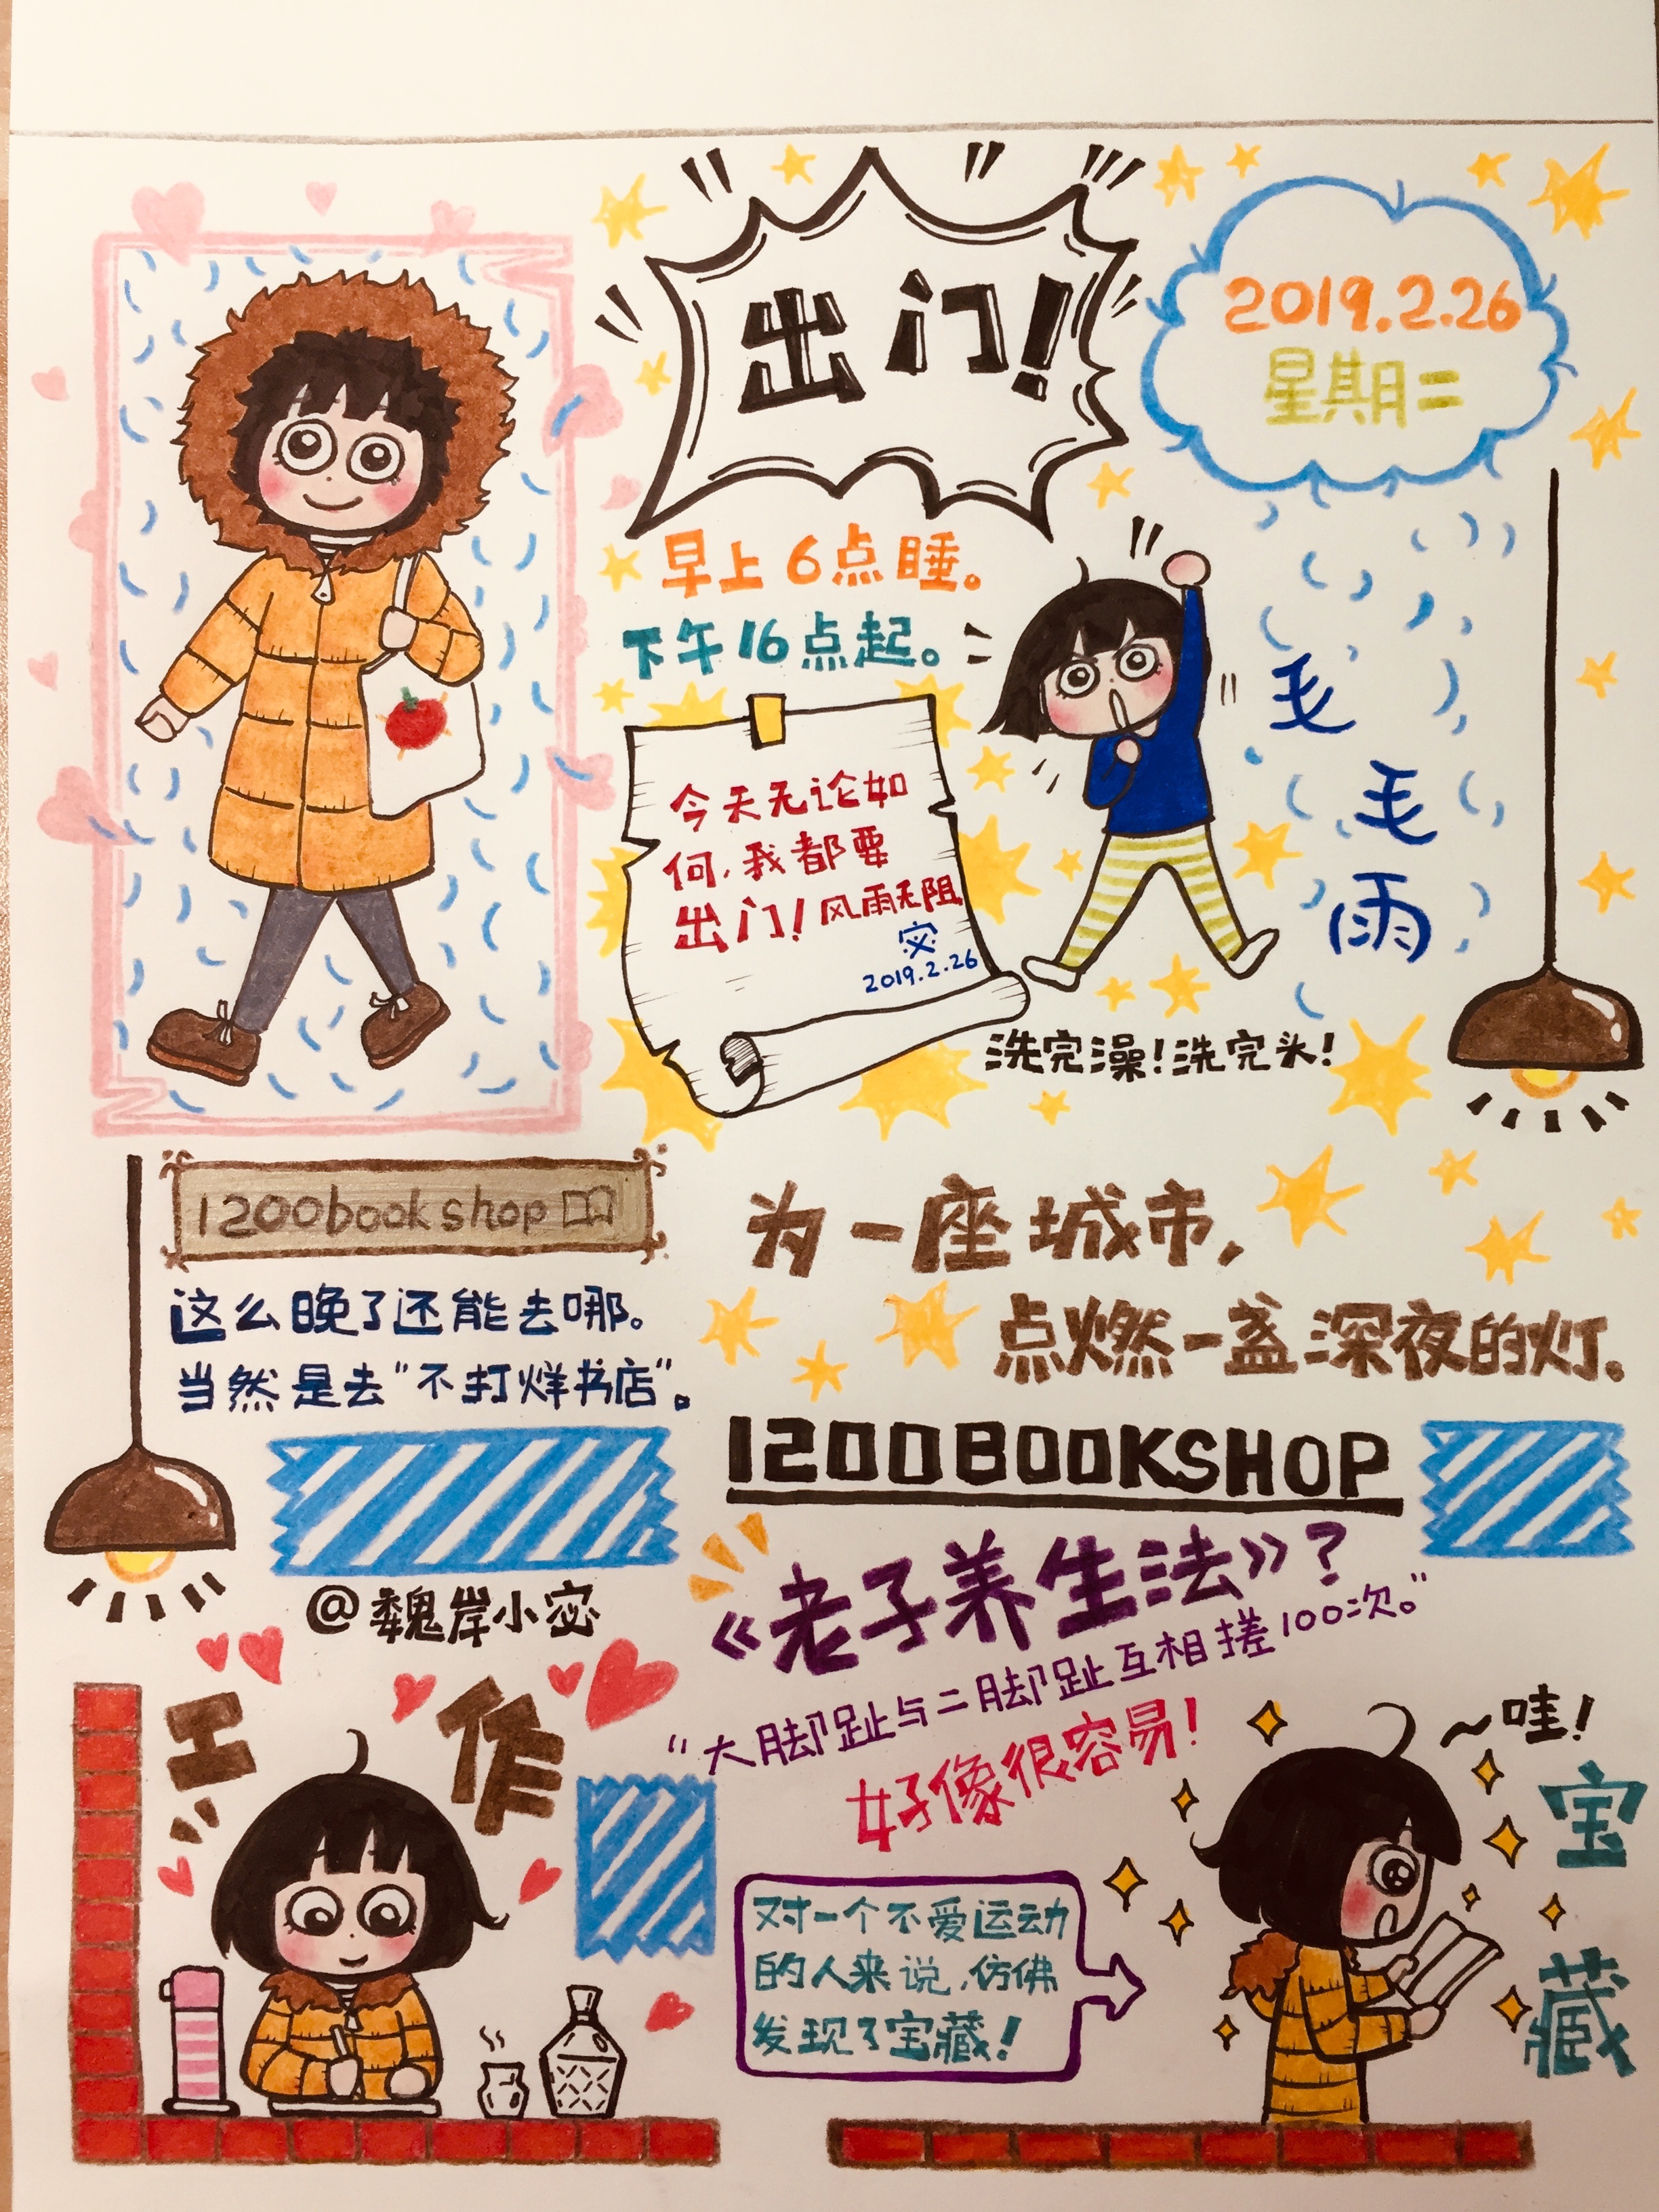 出门!
2019.2.26
星期二
早上6点睡。
下午16点起。
今天无论如
何,我都要
出门!风雨无阻
宓
2019.2.26
毛
毛
雨
洗完澡!洗完头!
1200bookshop
这么晚了还能去哪。
当然是去"不打烊书店"。
为一座城市,
点燃一盏深夜的灯。
1200BOOKSHOP
@魏岸小宓
《老子养生法》?
"大脚趾与二脚趾互相搓100次。"
好像很容易!
工作
对一个不爱运动
的人来说,仿佛
发现了宝藏!
~哇!
宝
藏